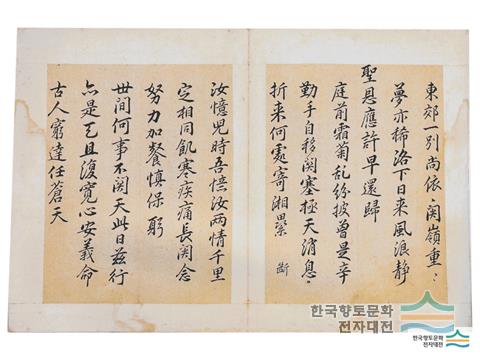 東郊一別尚依〻関嶺重〻
夢亦稀洛下日来風浪静
聖恩應許早還歸
庭前霜菊乱紛披曾是辛
勤手自移関塞極天消息〻
折来何處寄湘纍 斷
汝憶兒時吾憶汝兩情千里
定相同飢寒疾痛長関念
努力加餐慎保躬
世間何事不関天此日兹行
亦是天且復寬心安義命
古人窮達任蒼天
한국향토문화
전자대전
한국향토문화
전자대전